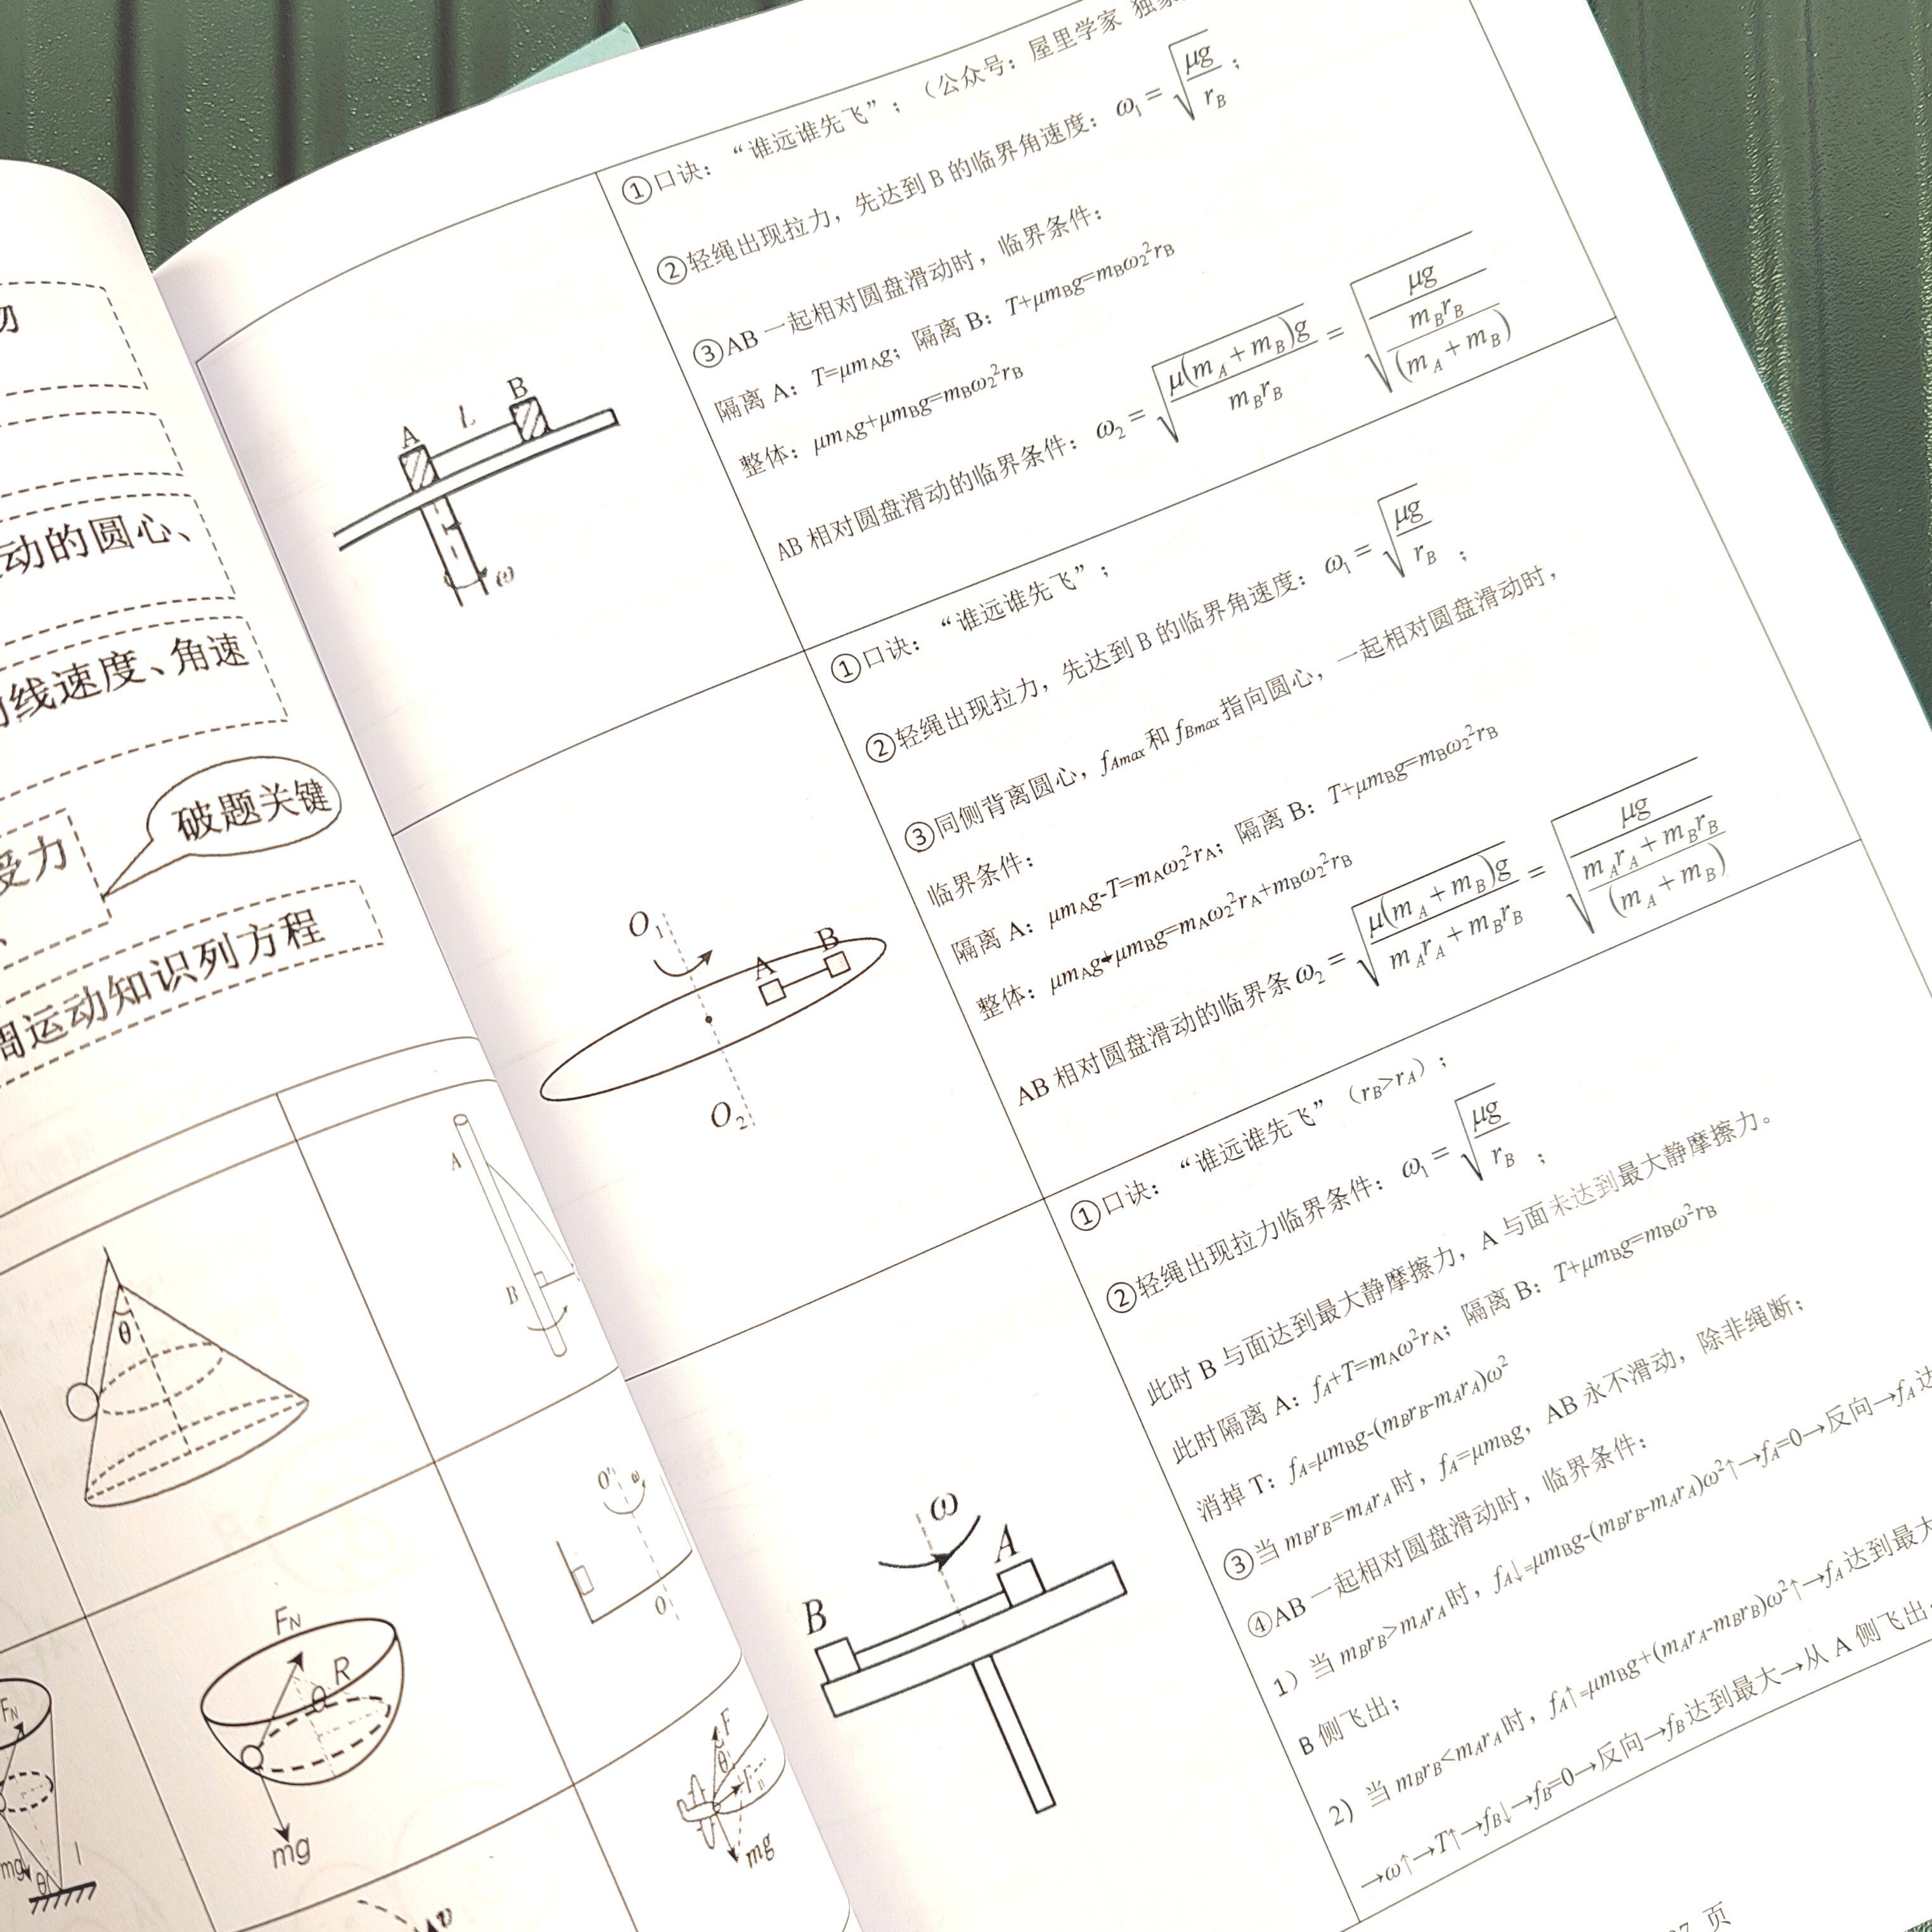 动的圆心、
线速度、角速
破题关键
受力
周运动知识列方程
A
B
θ
O'
ω
O
F_N
R
θ
mg
F_N
mg
θ
l
F
θ
mg
v
A
L
B
ω
①口诀：“谁远谁先飞”；（公众号：屋里学家 独家
②轻绳出现拉力，先达到 B 的临界角速度：ω₁=√(μg/r_B)；
③AB 一起相对圆盘滑动时，临界条件：
隔离 A：T=μm_Ag；隔离 B：T+μm_Bg=m_Bω₂²r_B
整体：μm_Ag+μm_Bg=m_Bω₂²r_B
AB 相对圆盘滑动的临界条件：ω₂=√(μ(m_A+m_B)g/(m_Br_B))=√(μg/(m_Br_B/(m_A+m_B)))
O₁
A
B
O₂
①口诀：“谁远谁先飞”；
②轻绳出现拉力，先达到 B 的临界角速度：ω₁=√(μg/r_B)；
③同侧背离圆心，f_Amax 和 f_Bmax 指向圆心，一起相对圆盘滑动时，
临界条件：
隔离 A：μm_Ag-T=m_Aω₂²r_A；隔离 B：T+μm_Bg=m_Bω₂²r_B
整体：μm_Ag+μm_Bg=m_Aω₂²r_A+m_Bω₂²r_B
AB 相对圆盘滑动的临界条 ω₂=√(μ(m_A+m_B)g/(m_Ar_A+m_Br_B))=√(μg/((m_Ar_A+m_Br_B)/(m_A+m_B)))
ω
A
B
①口诀：“谁远谁先飞”（r_B>r_A）；
②轻绳出现拉力临界条件：ω₁=√(μg/r_B)；
此时 B 与面达到最大静摩擦力，A 与面未达到最大静摩擦力。
此时隔离 A：f_A+T=m_Aω²r_A；隔离 B：T+μm_Bg=m_Bω²r_B
消掉 T：f_A=μm_Bg-(m_Br_B-m_Ar_A)ω²
③当 m_Br_B=m_Ar_A 时，f_A=μm_Bg，AB 永不滑动，除非绳断；
④AB 一起相对圆盘滑动时，临界条件：
1）当 m_Br_B>m_Ar_A 时，f_A↓=μm_Bg-(m_Br_B-m_Ar_A)ω²↑→f_A=0→反向→f_A 达
B 侧飞出；
2）当 m_Br_B<m_Ar_A 时，f_A↑=μm_Bg+(m_Ar_A-m_Br_B)ω²↑→f_A 达到最大
→ω↑→T↑→f_B↓→f_B=0→反向→f_B 达到最大→从 A 侧飞出
页